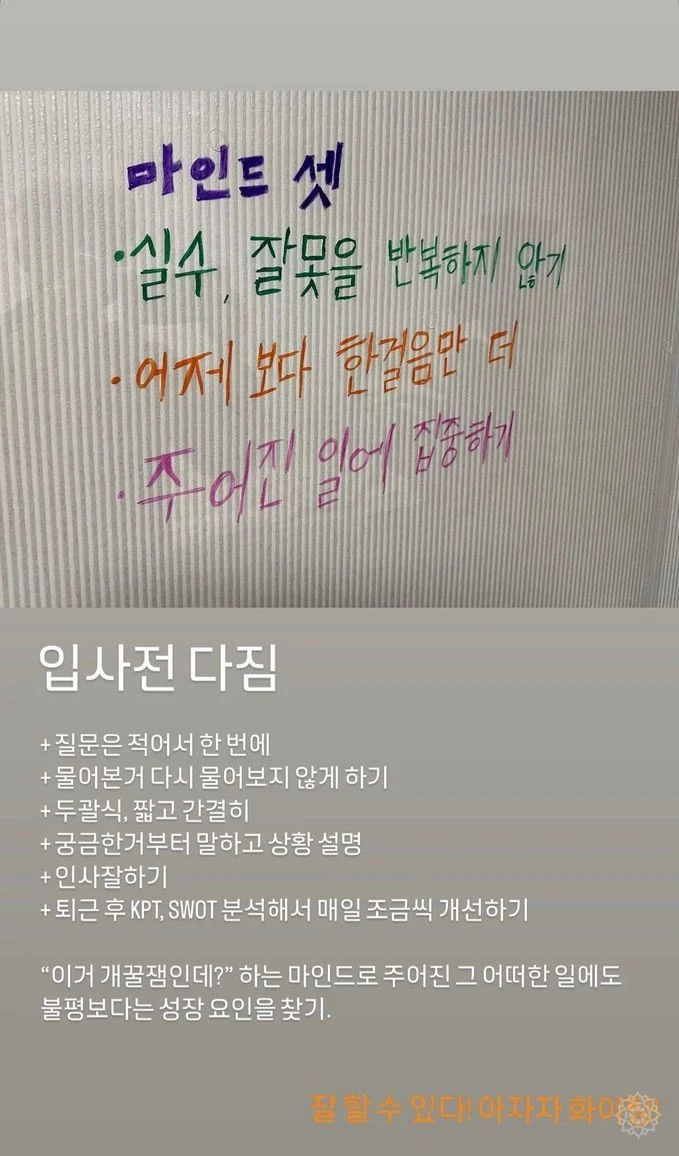 마인드 셋
• 실수, 잘못을 반복하지 않기
• 어제 보다 한걸음만 더
• 주어진 일에 집중하기
입사전 다짐
+ 질문은 적어서 한 번에
+ 물어본거 다시 물어보지 않게 하기
+ 두괄식, 짧고 간결히
+ 궁금한거부터 말하고 상황 설명
+ 인사잘하기
+ 퇴근 후 KPT, SWOT 분석해서 매일 조금씩 개선하기
“이거 개꿀잼인데?” 하는 마인드로 주어진 그 어떠한 일에도
불평보다는 성장 요인을 찾기.
잘 할 수 있다! 아자자